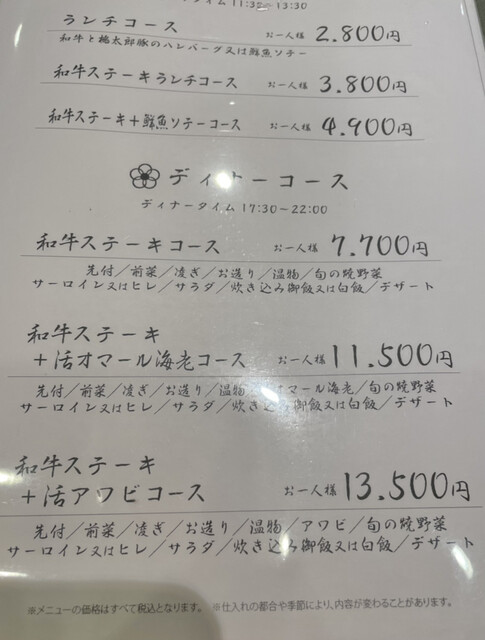 タイム 11:30~13:30
ランチコース お一人様 2.800円
和牛と桃太郎豚のハンバーグ又は鮮魚ソテー
和牛ステーキランチコース お一人様 3.800円
和牛ステーキ+鮮魚ソテーコース お一人様 4.900円
ディナーコース
ディナータイム 17:30~22:00
和牛ステーキコース お一人様 7.700円
先付/前菜/凌ぎ/お造り/温物/旬の焼野菜
サーロイン又はヒレ/サラダ/炊き込み御飯又は白飯/デザート
和牛ステーキ
+活オマール海老コース お一人様 11.500円
先付/前菜/凌ぎ/お造り/温物/オマール海老/旬の焼野菜
サーロイン又はヒレ/サラダ/炊き込み御飯又は白飯/デザート
和牛ステーキ
+活アワビコース お一人様 13.500円
先付/前菜/凌ぎ/お造り/温物/アワビ/旬の焼野菜
サーロイン又はヒレ/サラダ/炊き込み御飯又は白飯/デザート
※メニューの価格はすべて税込となります。 ※仕入れの都合や季節により、内容が変わることがあります。